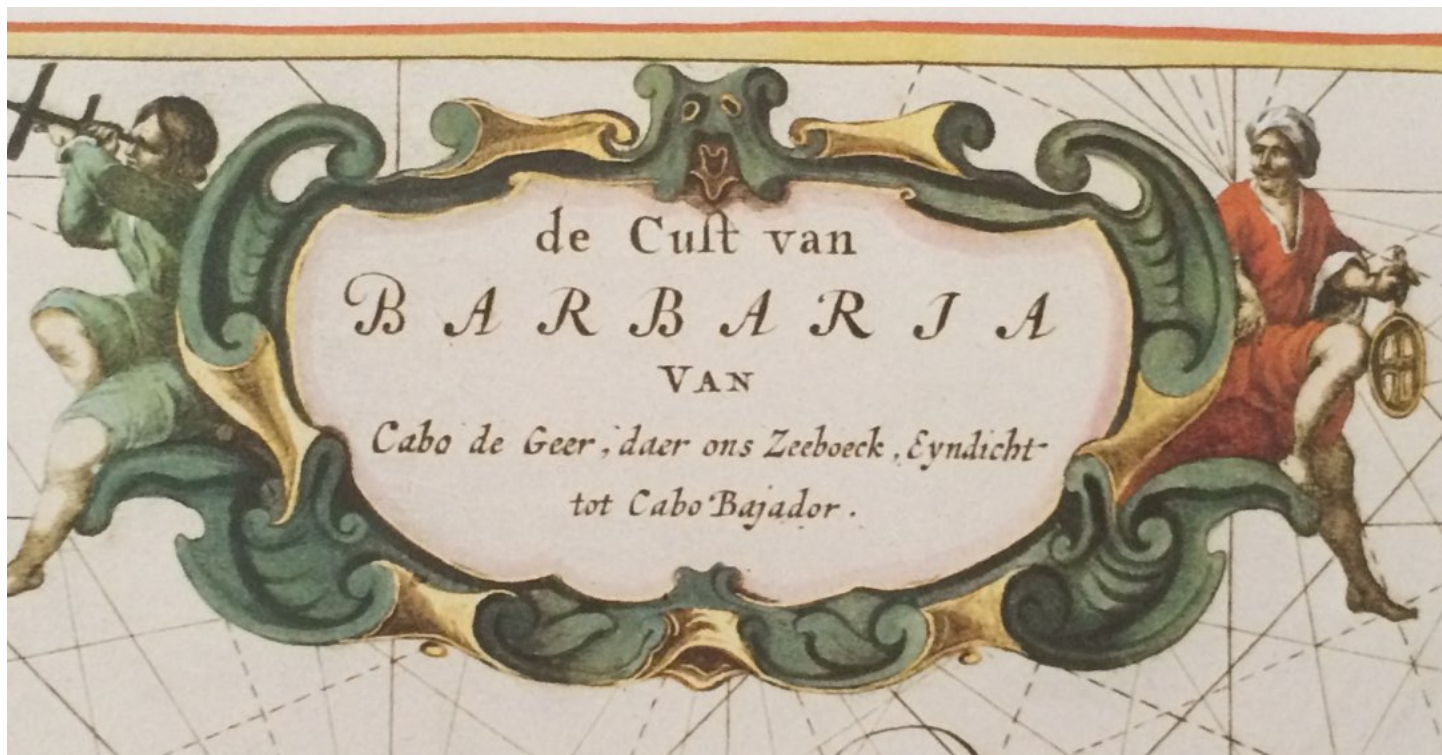 de Cuſt van
BARBARIA
VAN
Cabo de Geer, daer ons Zeeboeck, Eyndicht
tot Cabo Bajador.